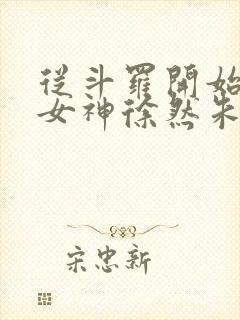 從斗羅開始
女神徐然朱
宋忠新